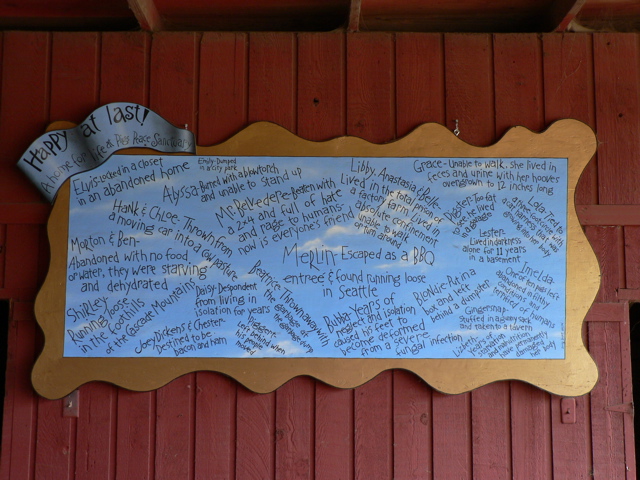 Happy at last!
A home for life at Pigs Peace Sanctuary
Elvis-Locked in a closet
in an abandoned home
Emily-Dumped
in a city park
Alyssa-Burned with a blowtorch
and unable to stand up
Libby, Anastasia & Belle-
Lived in the total prison of
a factory farm. Lived in
absolute confinement
unable to walk
or turn around
Grace-Unable to walk, she lived in
feces and urine with her hooves
overgrown to 12 inches long
Hank & Chloe-Thrown from
a moving car into a cow pasture
Mr. Belvedere-Beaten with
a 2x4 and full of hate
and rage to humans-
now is everyone's friend
Too fat
Lester-
Lived in darkness
alone for 11 years
in a basement
Morton & Ben-
Abandoned with no food
or water, they were starving
and dehydrated
Merlin-Escaped as a BBQ
entree & found running loose
in Seattle
Imelda-
Shirley-
Running loose
in the foothills
of the Cascade Mountains
Daisy-Despondent
from living in
isolation for years
Beatrice-Thrown away with
the garbage at
a garbage dump
Bubba-Years of
neglect and isolation
caused his feet to
become deformed
from a severe
fungal infection
Blondie-Put in a
box and left
behind a dumpster
Gingersnap-
Stuffed in a gunny sack
and taken to a tavern
Joey, Dickens & Chester-
Destined to be
bacon and ham
Left behind when
his people
moved
Years of
starvation
and malnutrition
have permanently
damaged
her body